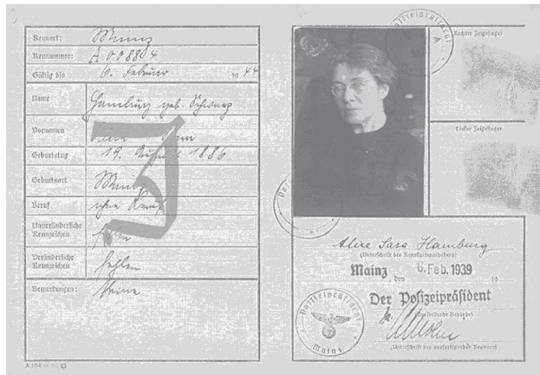 Kennort: Mainz
Kennnummer: A 008804
Gültig bis 6. Februar 1944
Name Hamburg geb.
Vornamen
Geburtstag 19. 1886
Geburtsort Mainz
Beruf ohne Beruf
Unveränderliche Kennzeichen fehlen
Veränderliche Kennzeichen fehlen
Bemerkungen: Keine
J
Rechter Zeigefinger
Linker Zeigefinger
Alice Sara Hamburg
(Unterschrift des Kennkarteninhabers)
Mainz, den 6. Feb. 1939
Der Polizeipräsident
(Ausstellende Behörde)
(Unterschrift des ausfertigenden Beamten)
Polizeipräsident
Mainz